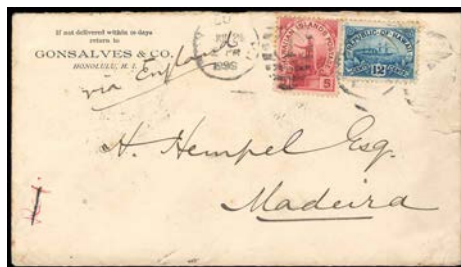 If not delivered within 10 days
return to
GONSALVES & CO.
HONOLULU, H. I.
via England
HAWAIIAN ISLANDS POSTAGE
5
REPUBLIC OF HAWAII
12
H. Hempel Esq.
Madeira